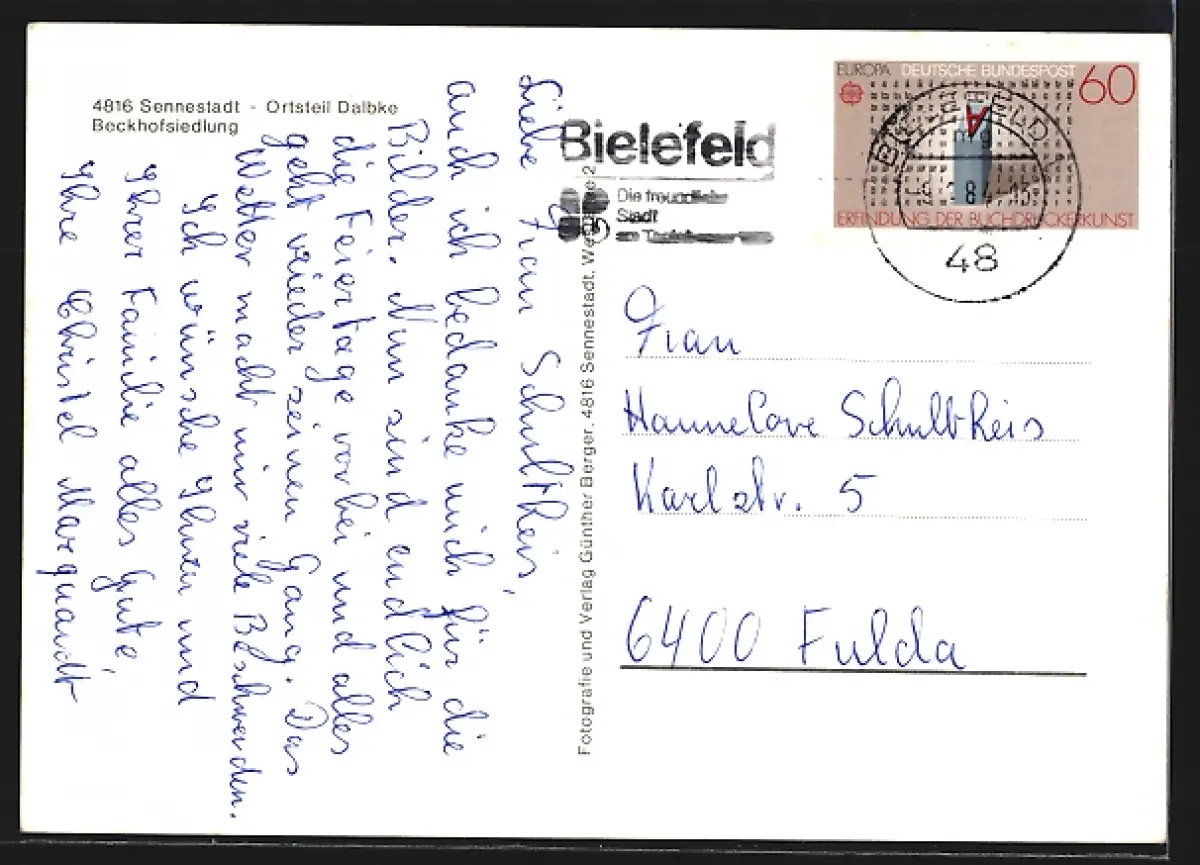 4816 Sennestadt - Ortsteil Dalbke
Beckhofsiedlung
Liebe Frau Schultheis,
auch ich bedanke mich für die
Bilder. Nun sind endlich
die Feiertage vorbei und alles
geht wieder seinen Gang. Das
Wetter macht mir viele Beschwerden.
Ich wünsche Ihnen und
Ihrer Familie alles Gute,
Ihre Christel Marquardt
Fotografie und Verlag Günther Berger, 4816 Sennestadt,
Bielefeld
Die freundliche
Stadt
am Teutoburger
EUROPA DEUTSCHE BUNDESPOST 60
ERFINDUNG DER BUCHDRUCKERKUNST
BIELEFELD
mg
48
Frau
Hannelore Schultheis
Karlstr. 5
6400 Fulda